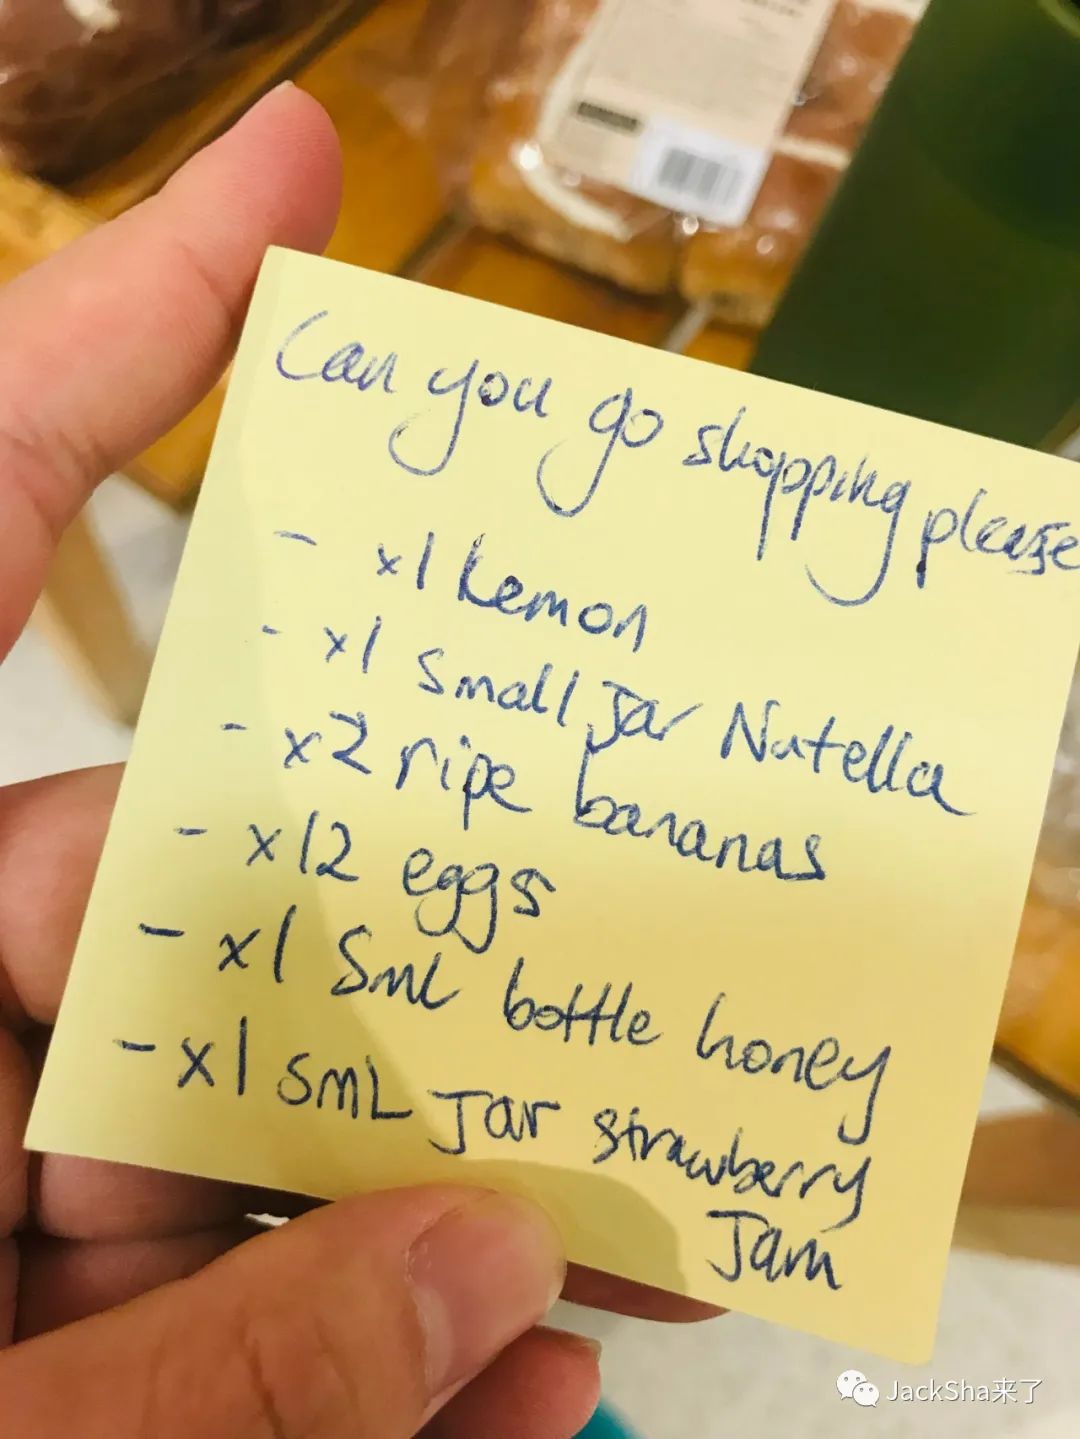 Can you go shopping please
- x1 Lemon
- x1 small Jar Nutella
- x2 ripe bananas
- x12 eggs
- x1 SmL bottle honey
- x1 SmL Jar strawberry
Jam
JackSha来了